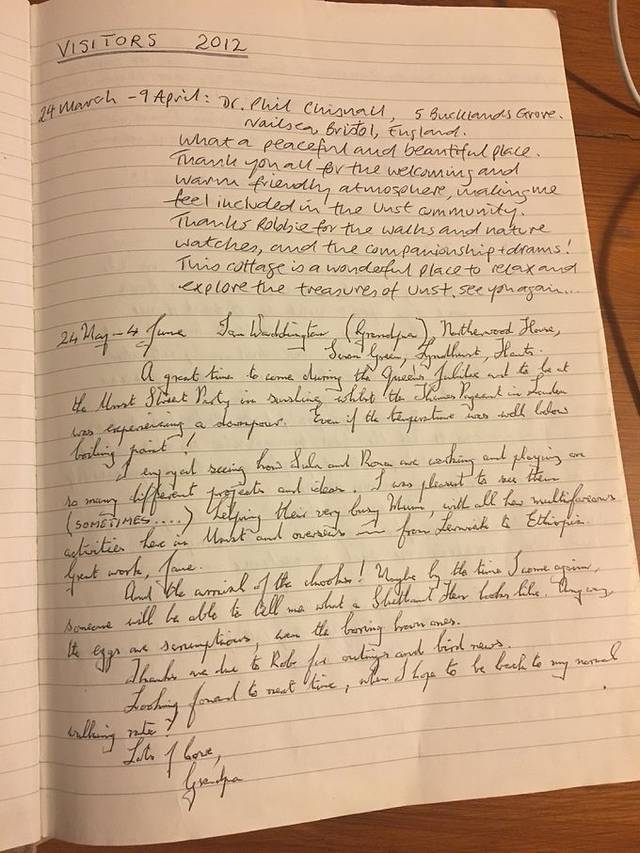 VISITORS 2012
24 March - 9 April: Dr. Phil Chisnall, 5 Bucklands Grove.
Nailsea, Bristol, England.
What a peaceful and beautiful place.
Thank you all for the welcoming and
warm friendly atmosphere, making me
feel included in the Unst community.
Thanks Robbie for the walks and nature
watches, and the companionship + drams!
This cottage is a wonderful place to relax and
explore the treasures of Unst. See you again...
24 May - 4 June Ian Waddington (Grandpa), Northerwood House,
Swan Green, Lyndhurst, Hants.
A great time to come during the Queen's Jubilee and to be at
the Unst Street Party in sunshine whilst the Thames Pageant in London
was experiencing a downpour. Even if the temperature was well below
boiling point!
I enjoyed seeing how and are working and playing on
so many different projects and ideas. I was pleased to see them
(SOMETIMES....) helping their very busy Mum, with all her multifarious
activities here in Unst and overseas — from Lerwick to Ethiopia.
Great work, Jane.
And the arrival of the chooks! Maybe by the time I come again,
someone will be able to tell me what a Shetland Hen looks like. Anyway,
the eggs are scrumptious, even the boring brown ones.
Thanks are due to Rob for outings and bird news.
Looking forward to next time, when I hope to be back to my normal
walking rate?
Lots of love,
Grandpa